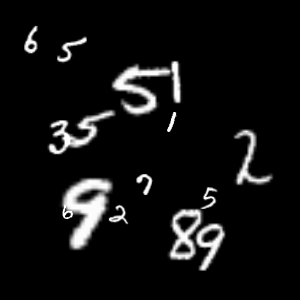 6 5
51
35
1
2
6 9 2 7
5
89